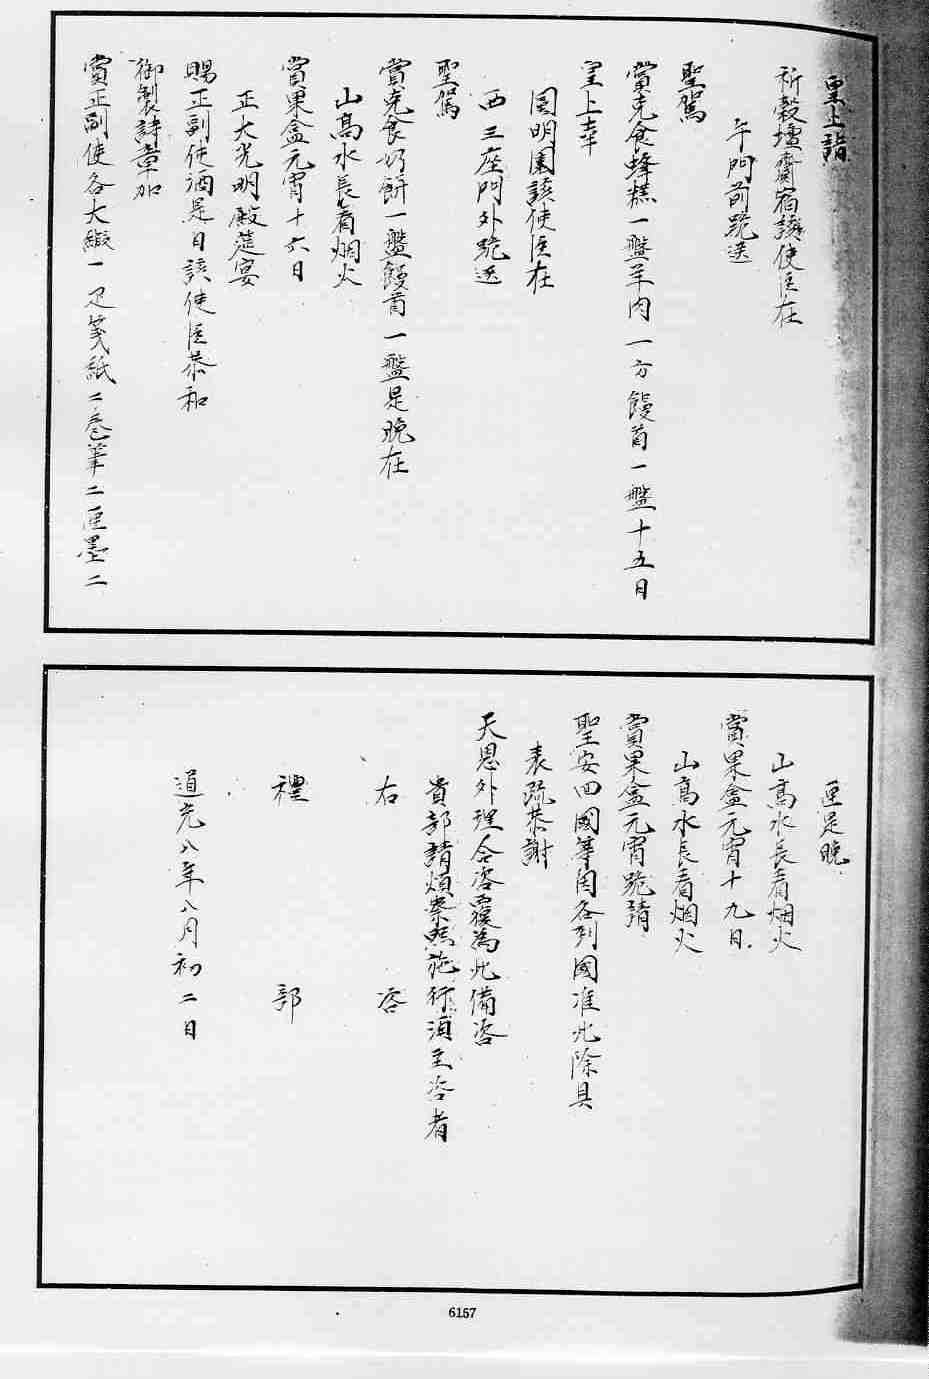 皇上詣
祈穀壇齋宿該使臣在
午門前跪送
聖駕
賞克食蜂糕一盤羊肉一方饅首一盤十五日
皇上幸
圓明園該使臣在
西三座門外跪送
聖駕
賞克食奶餅一盤饅首一盤是晚在
山高水長看烟火
賞果盒元宵十六日
正大光明殿筵宴
賜正副使酒是日該使臣恭和
御製詩章加
賞正副使各大緞一疋箋紙二卷筆二匣墨二
匣是晚
山高水長看烟火
賞果盒元宵十九日
山高水長看烟火
賞果盒元宵跪請
聖安四國等因各到國准此除具
表疏恭謝
天恩外理合咨覆為此備咨
貴部請煩察照施行須至咨者
右 咨
禮 部
道光八年八月初二日
6157